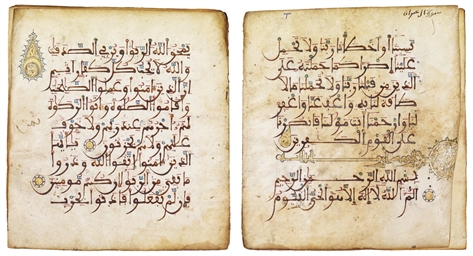 سورة ال عمران
نسينا او اخطانا ربنا ولا تحمل
علينا اصرا كما حملته على
الذين من قبلنا ربنا ولا تحملنا ما لا
طاقة لنا به واعف عنا واغفر
لنا وارحمنا انت مولينا فانصرنا
على القوم الكفرين
بسم الله الرحمن الرحيم
الم الله لا اله الا هو الحي القيوم
يمحق الله الربوا ويربي الصدقت
والله لا يحب كل كفار اثيم
ان الذين امنوا وعملوا الصلحت
واقاموا الصلوة واتوا الزكوة
لهم اجرهم عند ربهم ولا خوف
عليهم ولا هم يحزنون يايها
الذين امنوا اتقوا الله وذروا
ما بقي من الربوا ان كنتم مومنين
فان لم تفعلوا فاذنوا بحرب